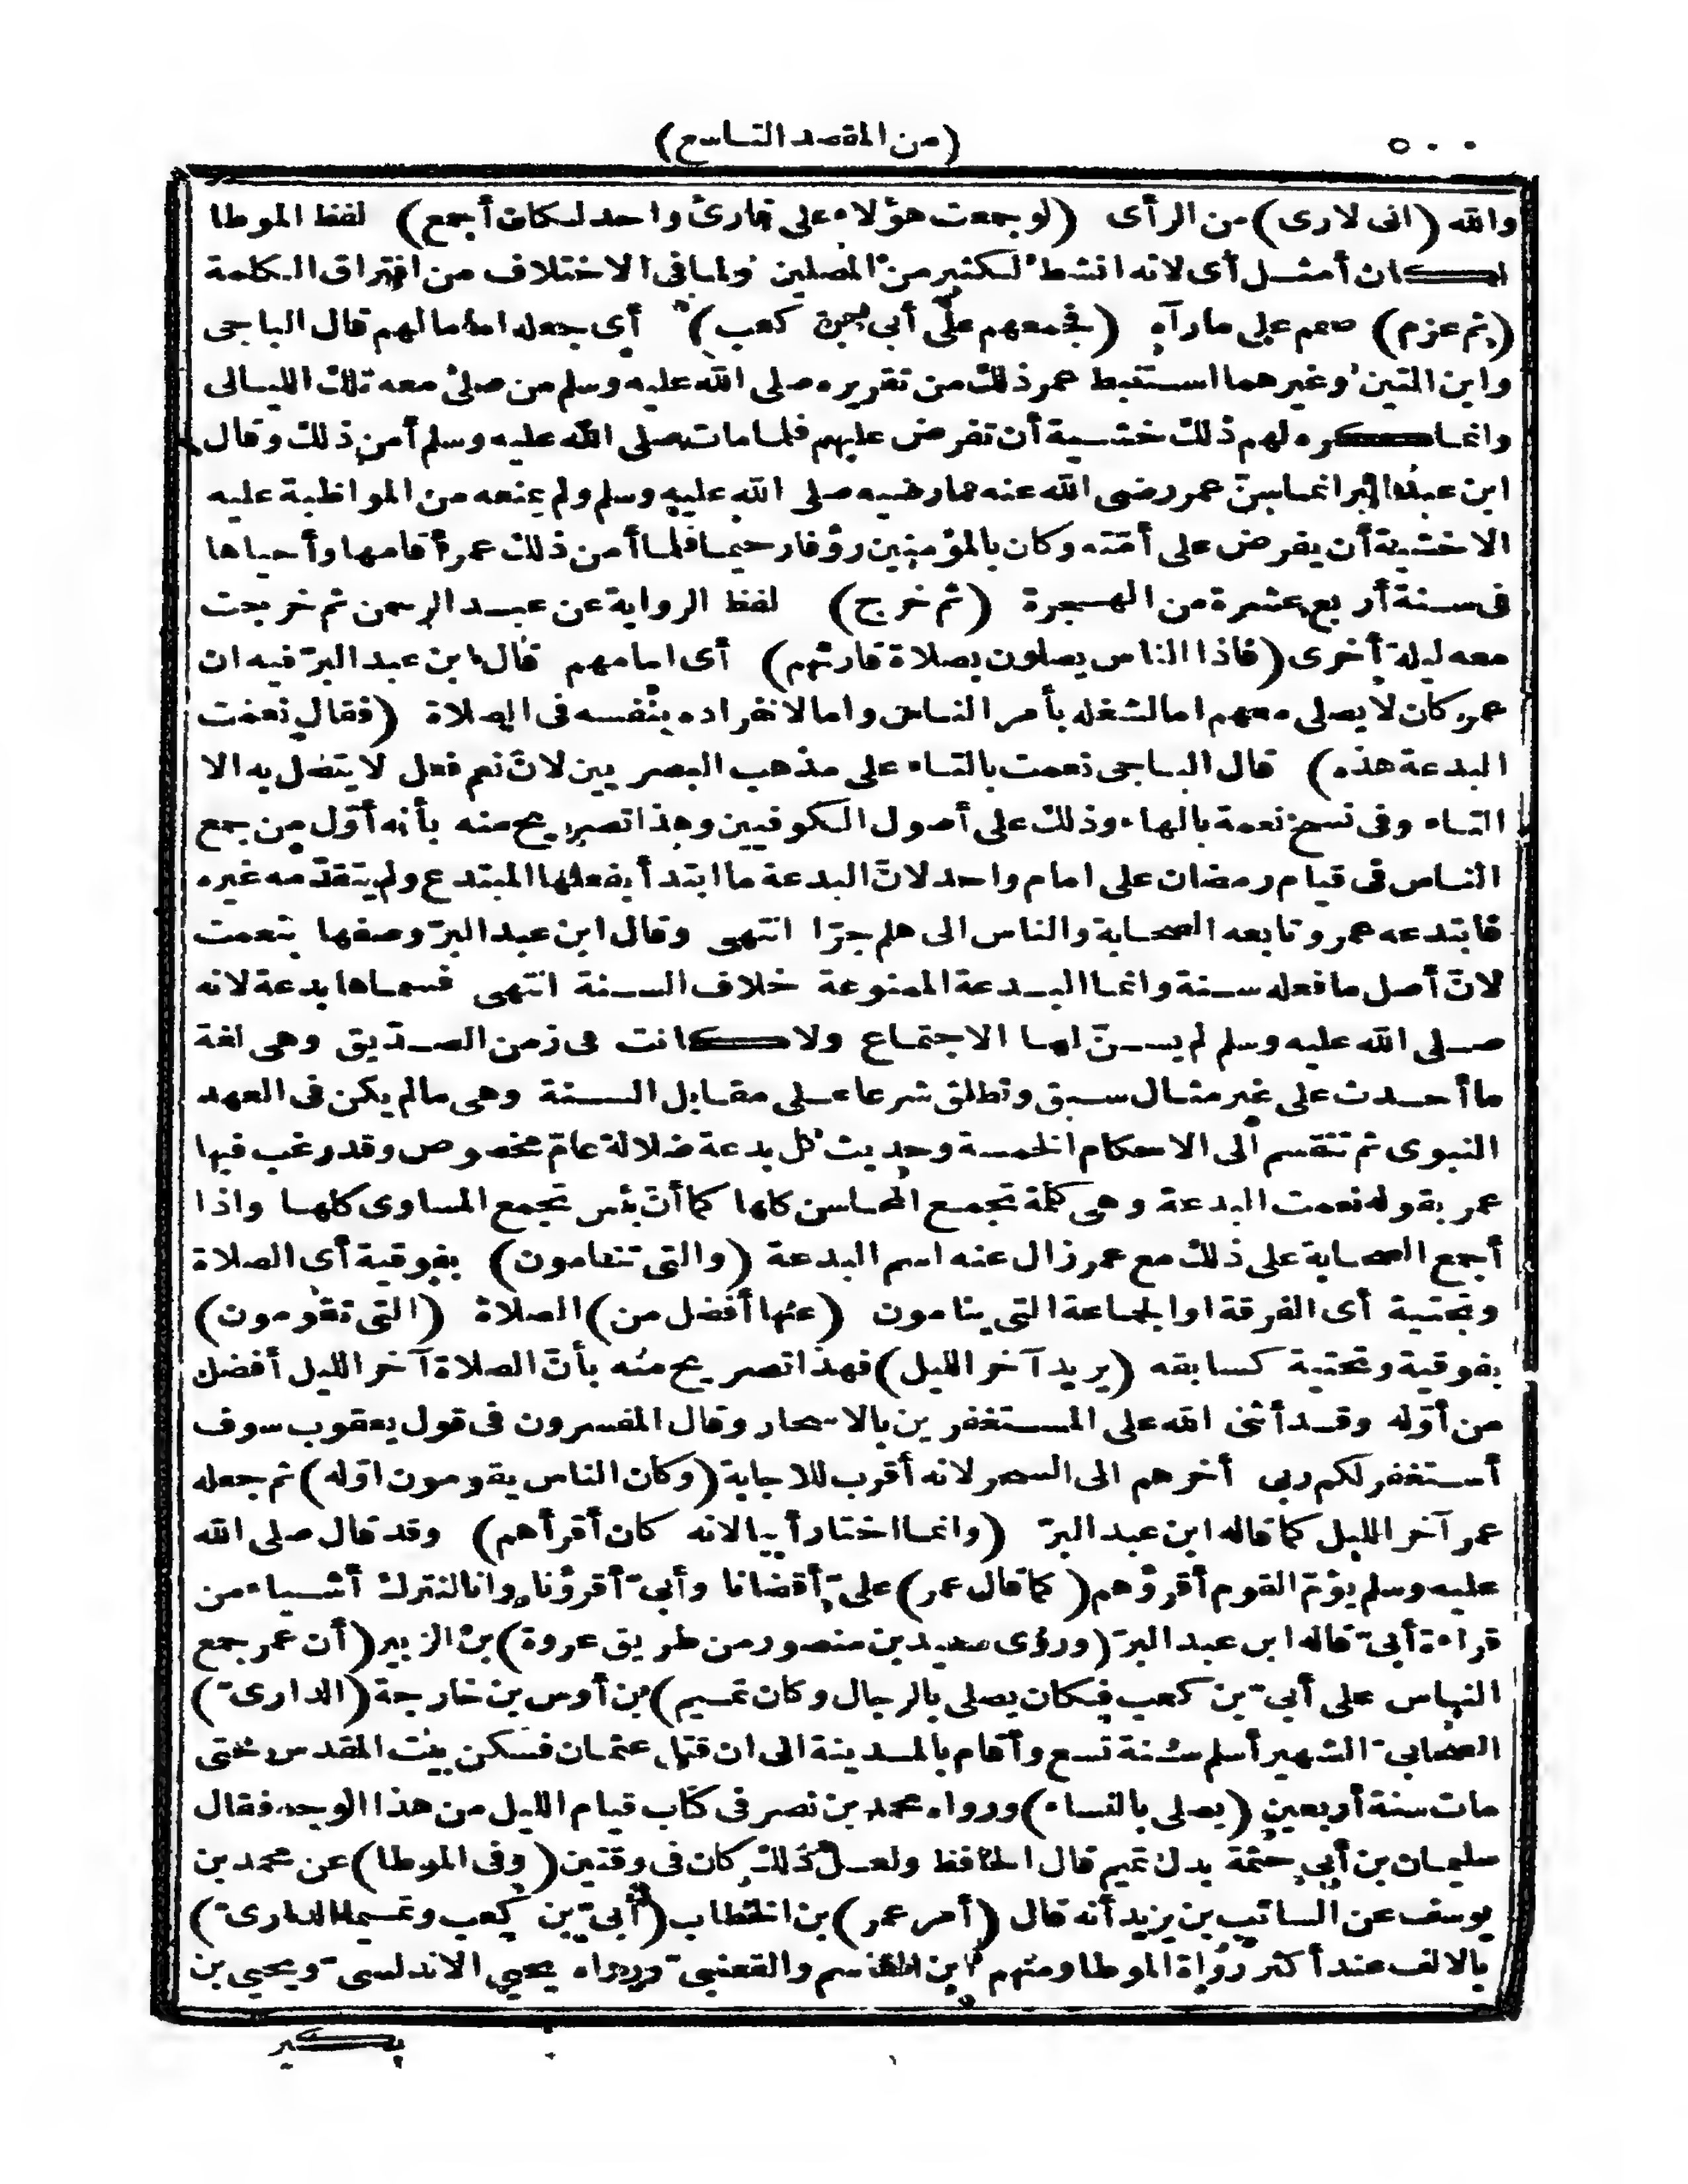 ٥٠٠
(من المقصد التاسع)
والله (انى لارى) من الرأى (لو جمعت هؤلاء على قارئ واحد لكان أجمع) لفظ الموطا
لكان أمثل أى لانه انشط لكثير من المصلين ولما فى الاختلاف من افتراق الكلمة
(ثم عزم) صمم على مارآه (فجمعهم على أبى بن كعب) أى جعله اماما لهم قال الباجى
وابن التين وغيرهما استنبط عمر ذلك من تقريره صلى الله عليه وسلم من صلى معه تلك الليالى
وانما كره لهم ذلك خشية أن تفرض عليهم فلما مات صلى الله عليه وسلم أمن ذلك وقال
ابن عبد البر انما سنّ عمر رضى الله عنه ما رضيه صلى الله عليه وسلم ولم يمنعه من المواظبة عليه
الا خشية أن يفرض على أمّته وكان بالمؤمنين رؤفا رحيما فلما أمن ذلك عمر أقامها وأحياها
فى سنة أربع عشرة من الهجرة (ثم خرج) لفظ الرواية عن عبد الرحمن ثم خرجت
معه ليلة أخرى (فاذا الناس يصلون بصلاة قارئهم) أى امامهم قال ابن عبد البرّ فيه ان
عمر كان لا يصلى معهم اما لشغله بأمر الناس واما لانفراده بنفسه فى الصلاة (فقال نعمت
البدعة هذه) قال الباجى نعمت بالتاء على مذهب البصريين لانّ نعم فعل لا يتصل به الا
التاء وفى نسخ نعمة بالهاء وذلك على أصول الكوفيين وهذا تصريح منه بأنه أوّل من جمع
الناس فى قيام رمضان على امام واحد لانّ البدعة ما ابتدأ بفعلها المبتدع ولم يتقدّمه غيره
فابتدعه عمر وتابعه الصحابة والناس الى هلم جرّا انتهى وقال ابن عبد البرّ وصفها بنعمت
لانّ أصل ما فعله سنة وانما البدعة الممنوعة خلاف السنة انتهى فسماها بدعة لانه
صلى الله عليه وسلم لم يسنّ لها الاجتماع ولا كانت فى زمن الصدّيق وهى لغة
ما أحدث على غير مثال سبق وتطلق شرعا على مقابل السنة وهى مالم يكن فى العهد
النبوى ثم تنقسم الى الاحكام الخمسة وحديث كل بدعة ضلالة عامّ مخصوص وقد رغب فيها
عمر بقوله نعمت البدعة وهى كلمة تجمع المحاسن كلها كما أنّ بئس تجمع المساوى كلها واذا
أجمع الصحابة على ذلك مع عمر زال عنه اسم البدعة (والتى تنامون) بفوقية أى الصلاة
وتحتية أى الفرقة او الجماعة التى ينامون (عنها أفضل من) الصلاة (التى تقومون)
بفوقية وتحتية كسابقه (يريد آخر الليل) فهذا تصريح منه بأنّ الصلاة آخر الليل أفضل
من أوّله وقد أثنى الله على المستغفرين بالاسحار وقال المفسرون فى قول يعقوب سوف
أستغفر لكم ربى أخرهم الى السحر لانه أقرب للاجابة (وكان الناس يقومون اوّله) ثم جعله
عمر آخر الليل كما قاله ابن عبد البرّ (وانما اختار أبيا لانه كان أقرأهم) وقد قال صلى الله
عليه وسلم يؤمّ القوم أقرؤهم (كما قال عمر) علىّ أقضانا وأبىّ أقرؤنا وانا لنترك أشياء من
قراءة أبىّ قاله ابن عبد البرّ (وروى سعيد بن منصور من طريق عروة) بن الزبير (أن عمر جمع
الناس على أبىّ بن كعب فكان يصلى بالرجال وكان تميم) بن أوس بن خارجة (الدارىّ)
الصحابىّ الشهير أسلم سنة تسع وأقام بالمدينة الى ان قتل عثمان فسكن بيت المقدس حتى
مات سنة أربعين (يصلى بالنساء) ورواه محمد بن نصر فى كتاب قيام الليل من هذا الوجه فقال
سليمان بن أبى حثمة بدل تميم قال الحافظ ولعل ذلك كان فى وقتين (وفى الموطا) عن محمد بن
يوسف عن السائب بن يزيد أنه قال (أمر عمر) بن الخطاب (أبىّ بن كعب وتميما الدارىّ)
بالالف عند أكثر رواة الموطا ومنهم ابن القاسم والقعنبىّ ورواه يحيى الاندلسىّ ويحيى بن
بكير